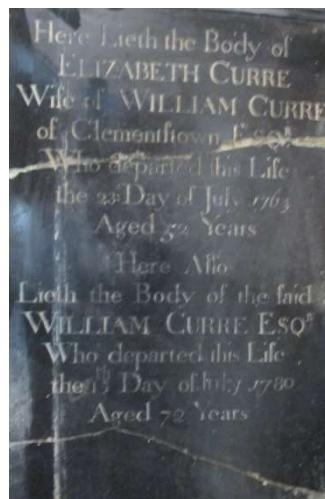 Here Lieth the Body of
ELIZABETH CURRE
Wife of WILLIAM CURRE
of Clementſtown ESQR
Who departed this Life
the 23: Day of July 1763
Aged 52 Years
Here Alſo
Lieth the Body of the ſaid
WILLIAM CURRE ESQR
Who departed this Life
the Day of July 1780
Aged 72 Years